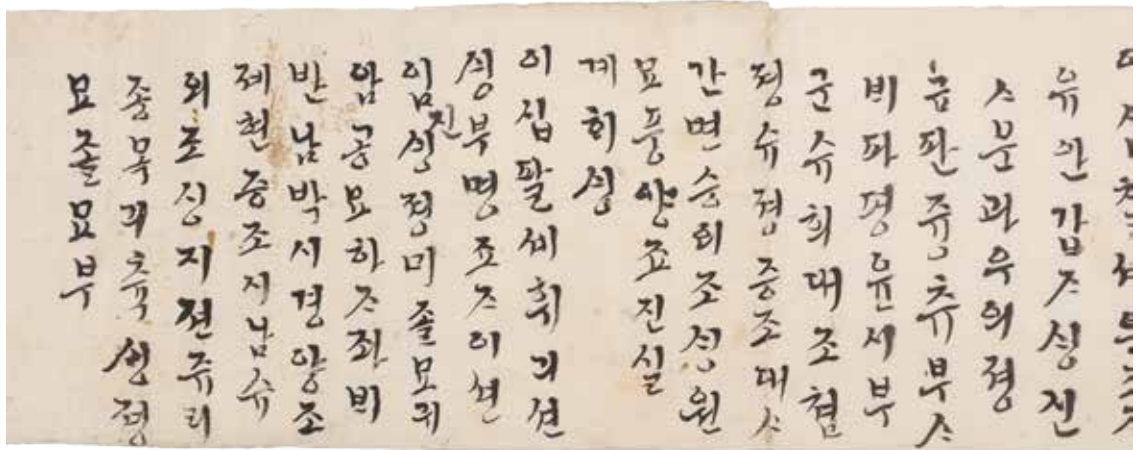 유안갑ᄌᆞ싱진
ᄉᆞ문과우의졍
판즁츄부ᄉᆞ
비파평윤시부
군슈희대조협
졍슈졍증조대ᄉᆞ
간면승의조싱원
묘풍양죠진실
계회싱
이십팔세휘긔션
싱부명죠ᄌᆞ이션
임진싱졍미졸묘긔
암공묘하ᄌᆞ좌비
반남박시경양조
졔현증조지남슈
외조싱지젼쥬리
종목긔츅싱졍
묘졸묘부